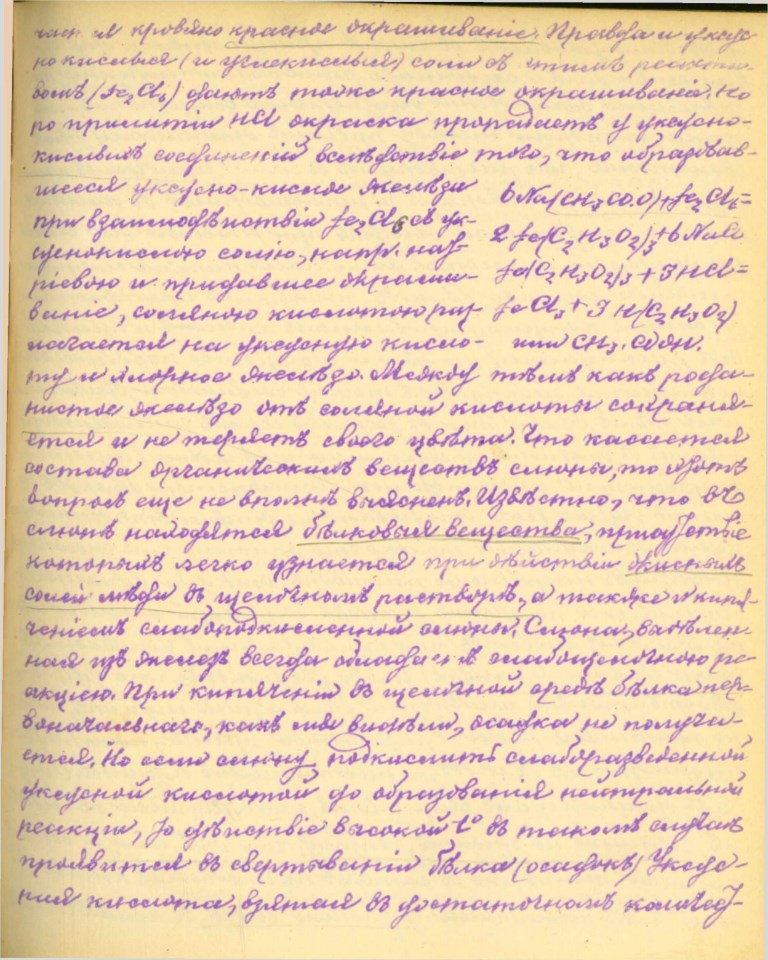 кровяно красное окрашиваніе. Правда и уксус-
нокислыя (и углекислыя) соли съ этимъ реакти-
вомъ (Fe₂Cl₆) даютъ тоже красное окрашиваніе. Но
по прилитіи HCl окраска пропадаетъ у уксусно-
кислыхъ соединеній вслѣдствіе того, что образовав-
шееся уксусно-кислое желѣзо
при взаимодѣйствіи Fe₂Cl₆ съ ук-
суснокислою солію, напр. нат-
ріевою и придавшее окраши-
ваніе, соляною кислотою раз-
лагается на уксусную кисло-
6Na(CH₃COO)+Fe₂Cl₆=
2Fe(C₂H₃O₂)₃+6NaCl
Fe(C₂H₃O₂)₃+3HCl=
FeCl₃+3H(C₂H₃O₂)
или CH₃.COOH.
ту и хлорное желѣзо. Между тѣмъ какъ рода-
нистое желѣзо отъ соляной кислоты сохраня-
ется и не теряетъ своего цвѣта. Что касается
состава органическихъ веществъ слюны, то этотъ
вопросъ еще не вполнѣ выясненъ. Извѣстно, что въ
слюнѣ находятся бѣлковыя вещества, присутствіе
которыхъ легко узнается при дѣйствіи окисныхъ
солей мѣди въ щелочномъ растворѣ, а также и кипя-
ченіемъ слабоподкисленной слюны. Слюна, выдѣлен-
ная изъ железъ всегда обладаетъ слабощелочною ре-
акціею. При кипяченіи въ щелочной средѣ бѣлка пер-
воначальнаго, какъ мы видѣли, осадка не получа-
ется. Но если слюну подкислить слаборазведенной
уксусной кислотой до образованія нейтральной
реакціи, то дѣйствіе высокой t° въ такомъ случаѣ
проявится въ свертываніи бѣлка (осадокъ) Уксус-
ная кислота, взятая въ достаточномъ количест-